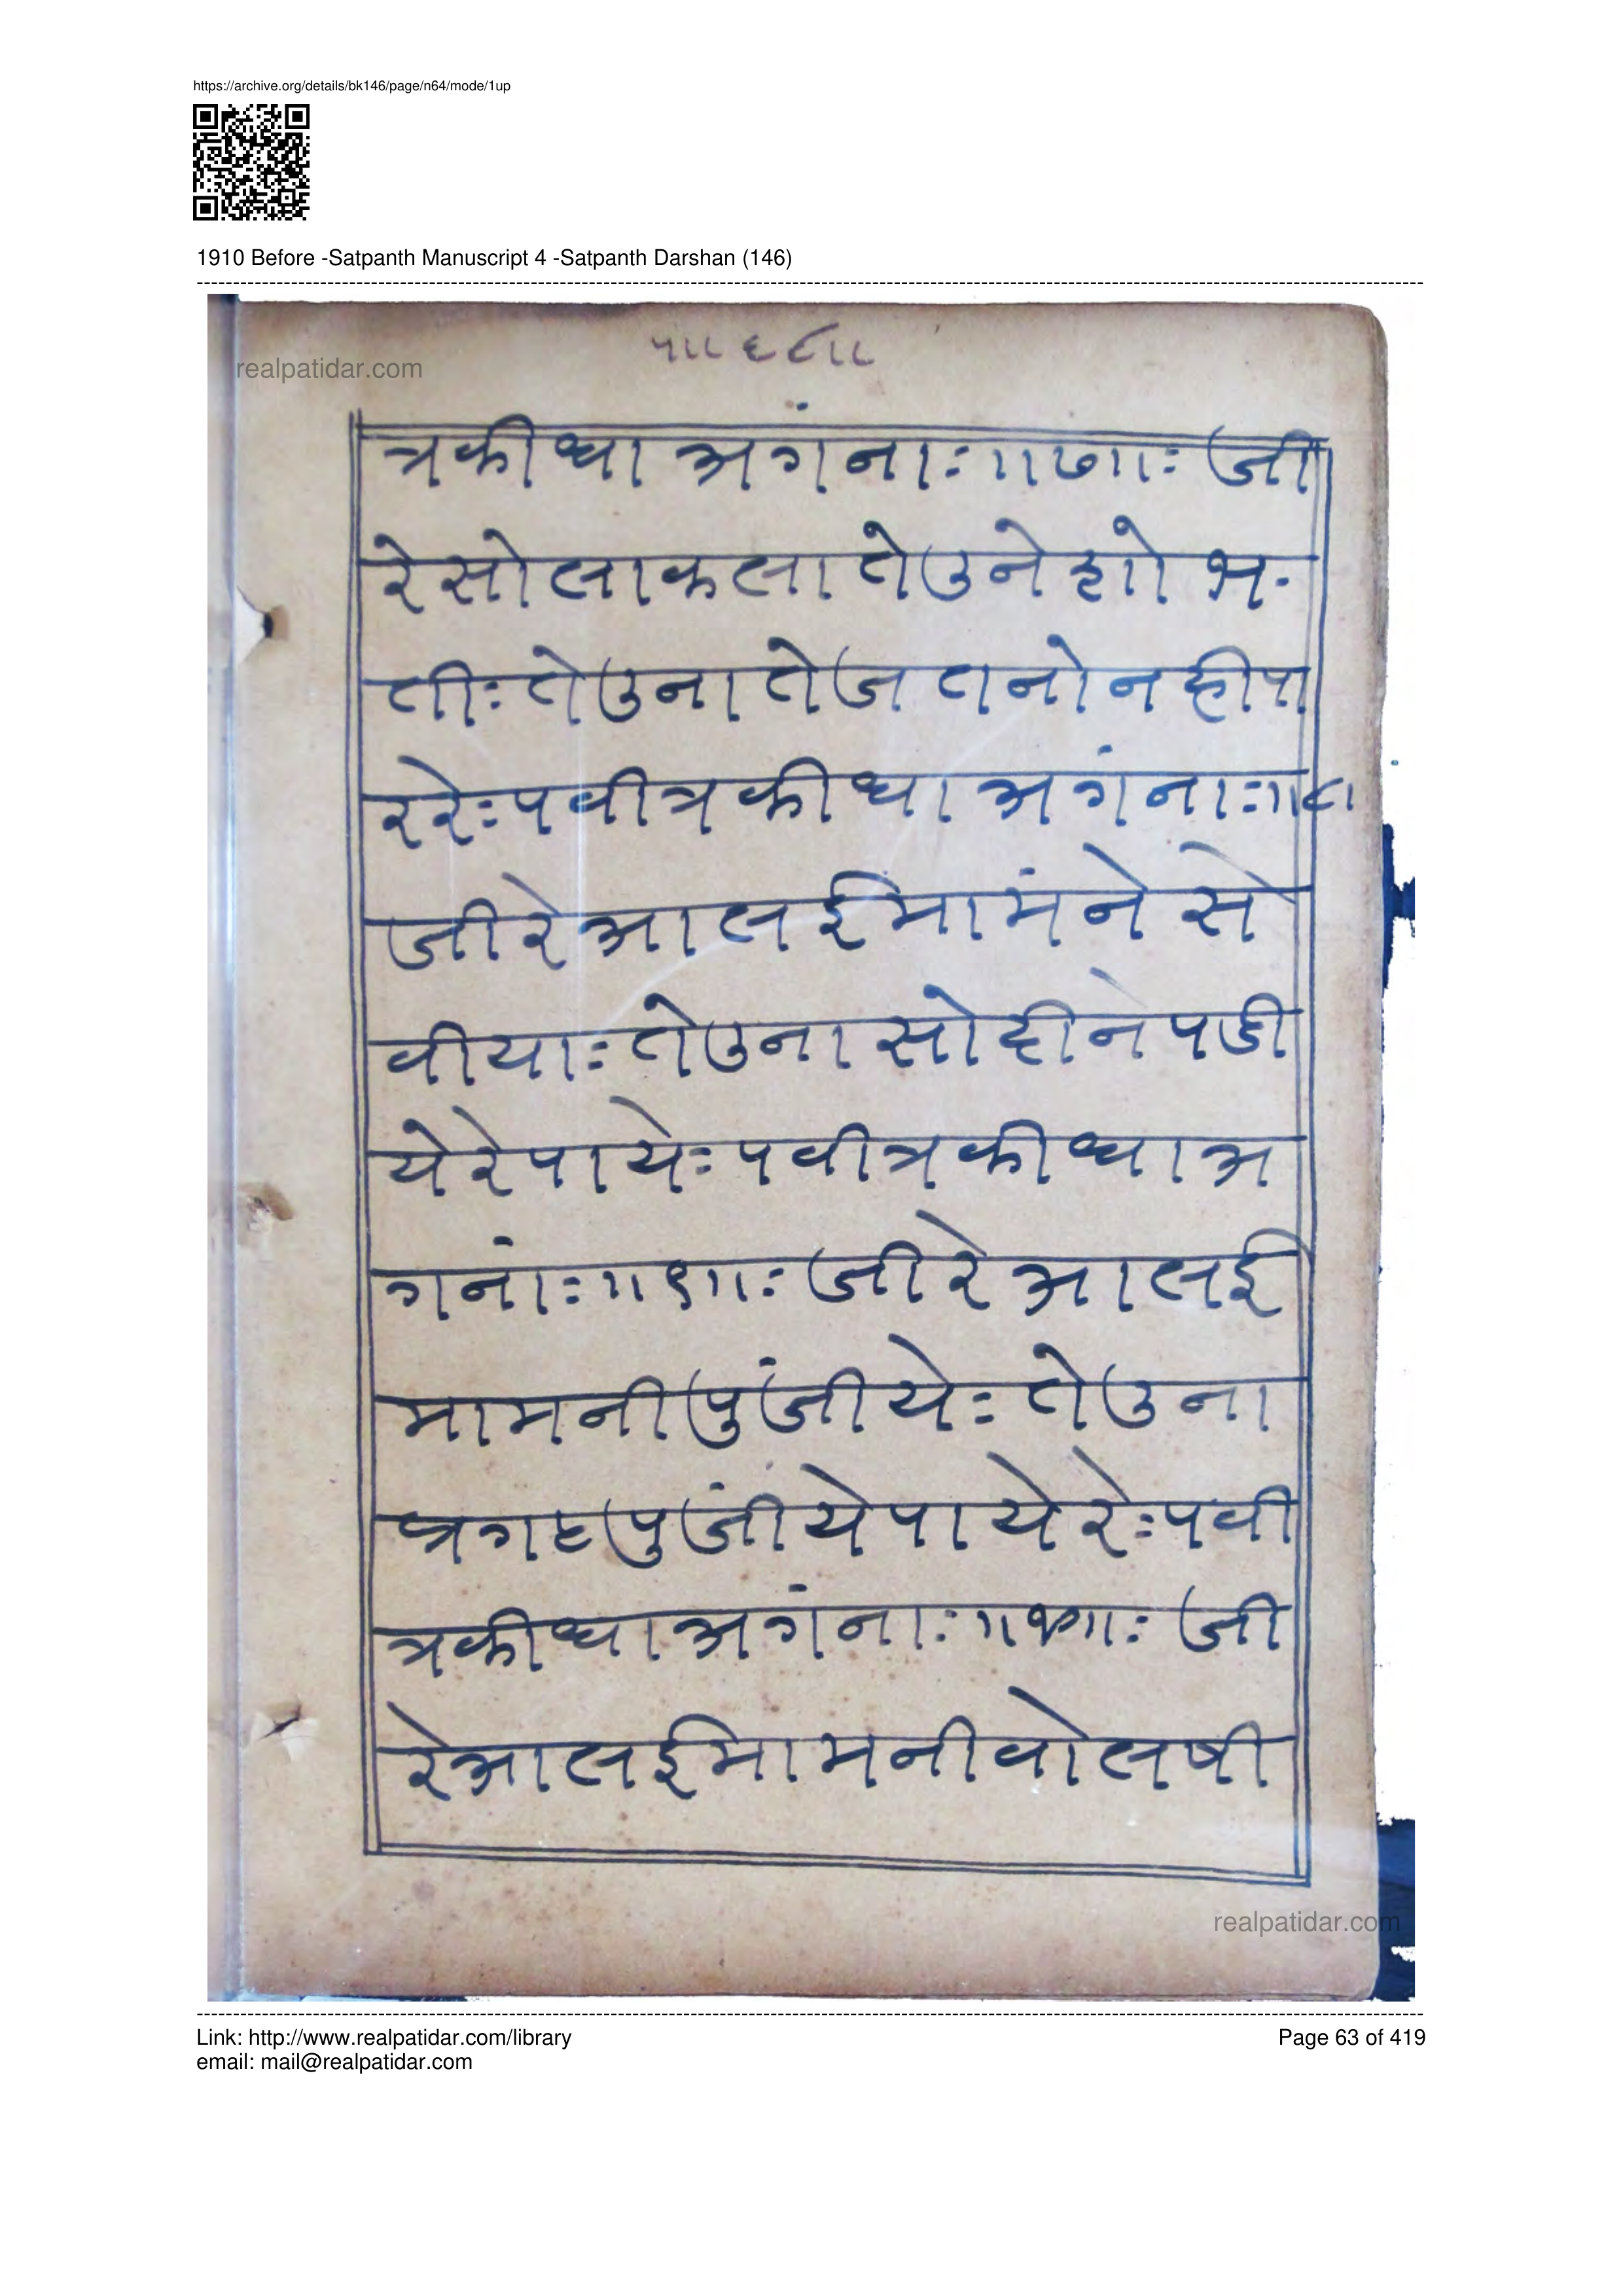 https://archive.org/details/bk146/page/n64/mode/1up
1910 Before -Satpanth Manuscript 4 -Satpanth Darshan (146)
realpatidar.com
५॥६८॥
त्रकीधा अगंनाः॥७॥ः जी
रेसोलाकला तेउने हाो भ
तीः तेउना तेज तानो नहीपा
ररेः पवीत्रकीधा अगंनाः॥८।
जीरे आलईमामंने से
वीयाः तेउना सोहीने पडी
येरेपायेः पवीत्रकीधा अ
गनांः॥९॥ः जीरे आलई
मामनी पुंजीयेः तेउना
प्रगट पुजींये पायेरेः पवी
त्रकीधा अगंनाः॥१०॥ः जी
रे आलईमामनी वोलषी
realpatidar.com
Link: http://www.realpatidar.com/library
Page 63 of 419
email: mail@realpatidar.com